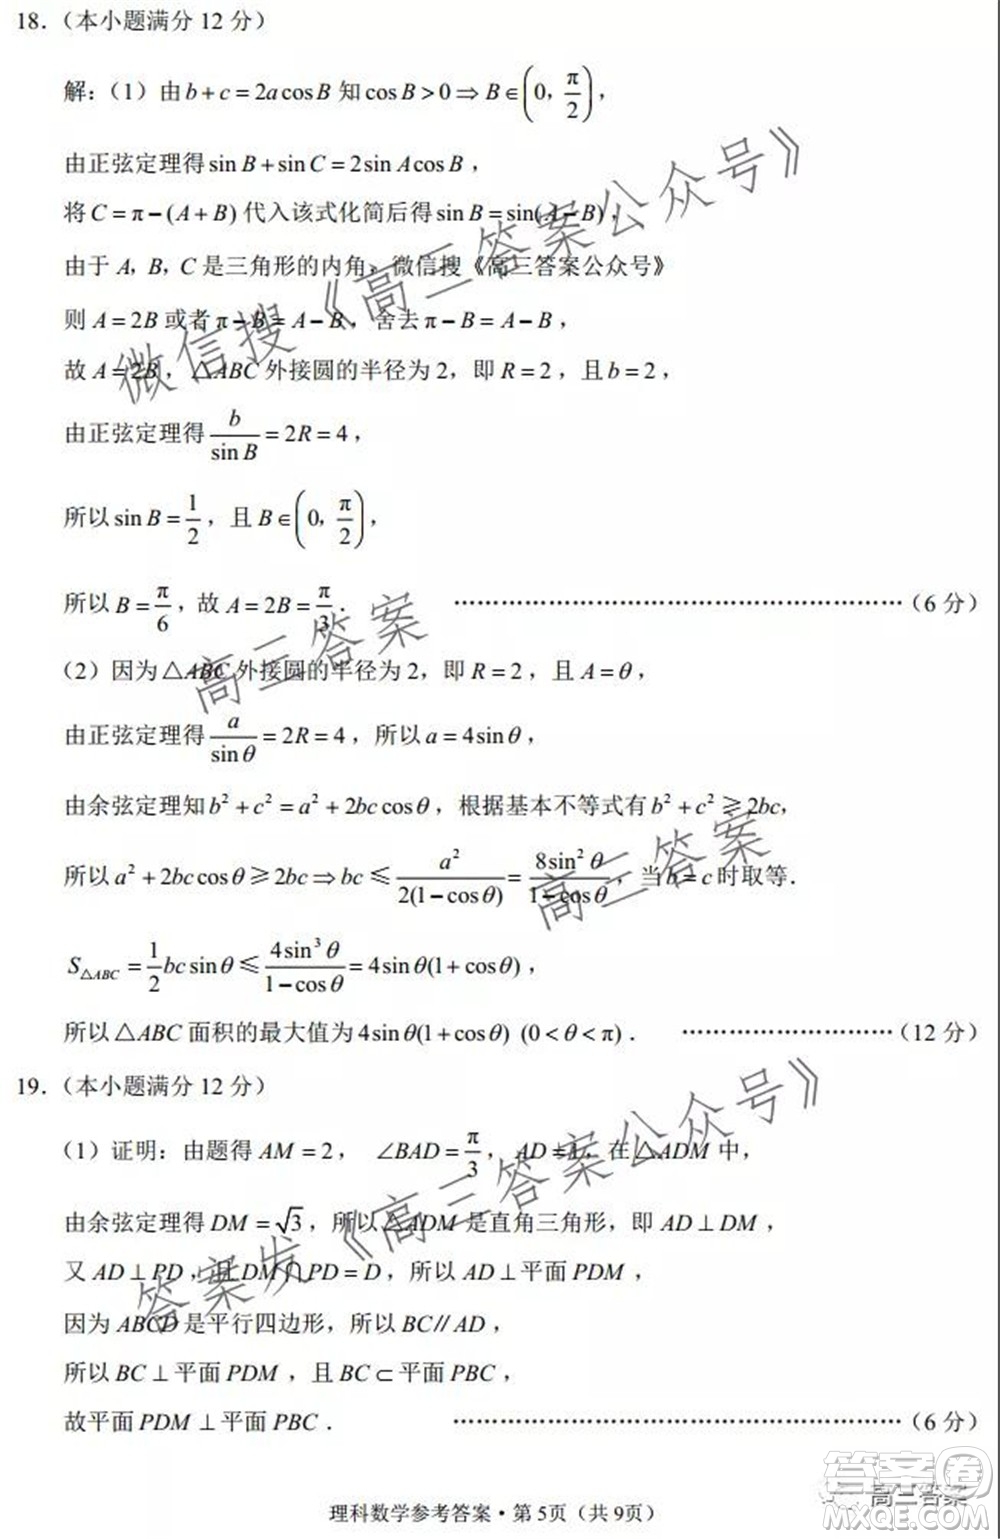 18.（本小题满分 12 分）
解：（1）由 b + c = 2a cos B 知 cos B > 0 ⇒ B ∈ (0, π/2)，
由正弦定理得 sin B + sin C = 2sin A cos B，
将 C = π − (A + B) 代入该式化简后得 sin B = sin(A − B)，
由于 A，B，C 是三角形的内角，微信搜《高三答案公众号》
则 A = 2B 或者 π − B = A − B，舍去 π − B = A − B，
故 A = 2B，△ABC 外接圆的半径为 2，即 R = 2，且 b = 2，
由正弦定理得 b/sin B = 2R = 4，
所以 sin B = 1/2，且 B ∈ (0, π/2)，
所以 B = π/6，故 A = 2B = π/3．………………………………………………（6 分）
（2）因为 △ABC 外接圆的半径为 2，即 R = 2，且 A = θ，
由正弦定理得 a/sin θ = 2R = 4，所以 a = 4sin θ，
由余弦定理知 b² + c² = a² + 2bc cos θ，根据基本不等式有 b² + c² ≥ 2bc，
所以 a² + 2bc cos θ ≥ 2bc ⇒ bc ≤ a²/2(1 − cos θ) = 8sin² θ/1 − cos θ，当 b = c 时取等．
S△ABC = 1/2 bc sin θ ≤ 4sin³ θ/1 − cos θ = 4sin θ(1 + cos θ)，
所以 △ABC 面积的最大值为 4sin θ(1 + cos θ) (0 < θ < π)．………………………（12 分）
19.（本小题满分 12 分）
（1）证明：由题得 AM = 2，∠BAD = π/3，AD = 1，在 △ADM 中，
由余弦定理得 DM = √3，所以 △ADM 是直角三角形，即 AD ⊥ DM，
又 AD ⊥ PD，且 DM ∩ PD = D，所以 AD ⊥ 平面 PDM，
因为 ABCD 是平行四边形，所以 BC // AD，
所以 BC ⊥ 平面 PDM，且 BC ⊂ 平面 PBC，
故平面 PDM ⊥ 平面 PBC．………………………………………………（6 分）
理科数学参考答案・第 5页（共 9页）
微信搜《高三答案公众号》
高三答案
高三答案
答案发《高三答案公众号》
高三答案
答案圈
MXQE.COM